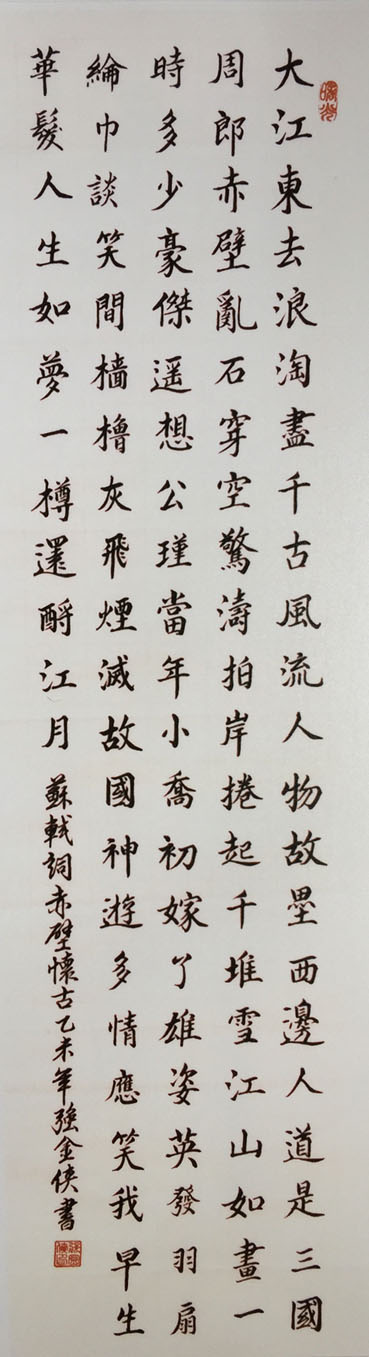 大江東去浪淘盡千古風流人物故壘西邊人道是三國
周郎赤壁亂石穿空驚濤拍岸捲起千堆雪江山如畫一
時多少豪傑遥想公瑾當年小喬初嫁了雄姿英發羽扇
綸巾談笑間檣櫓灰飛煙滅故國神遊多情應笑我早生
華髮人生如夢一樽還酹江月
蘇軾詞赤壁懷古乙未年強金俠書